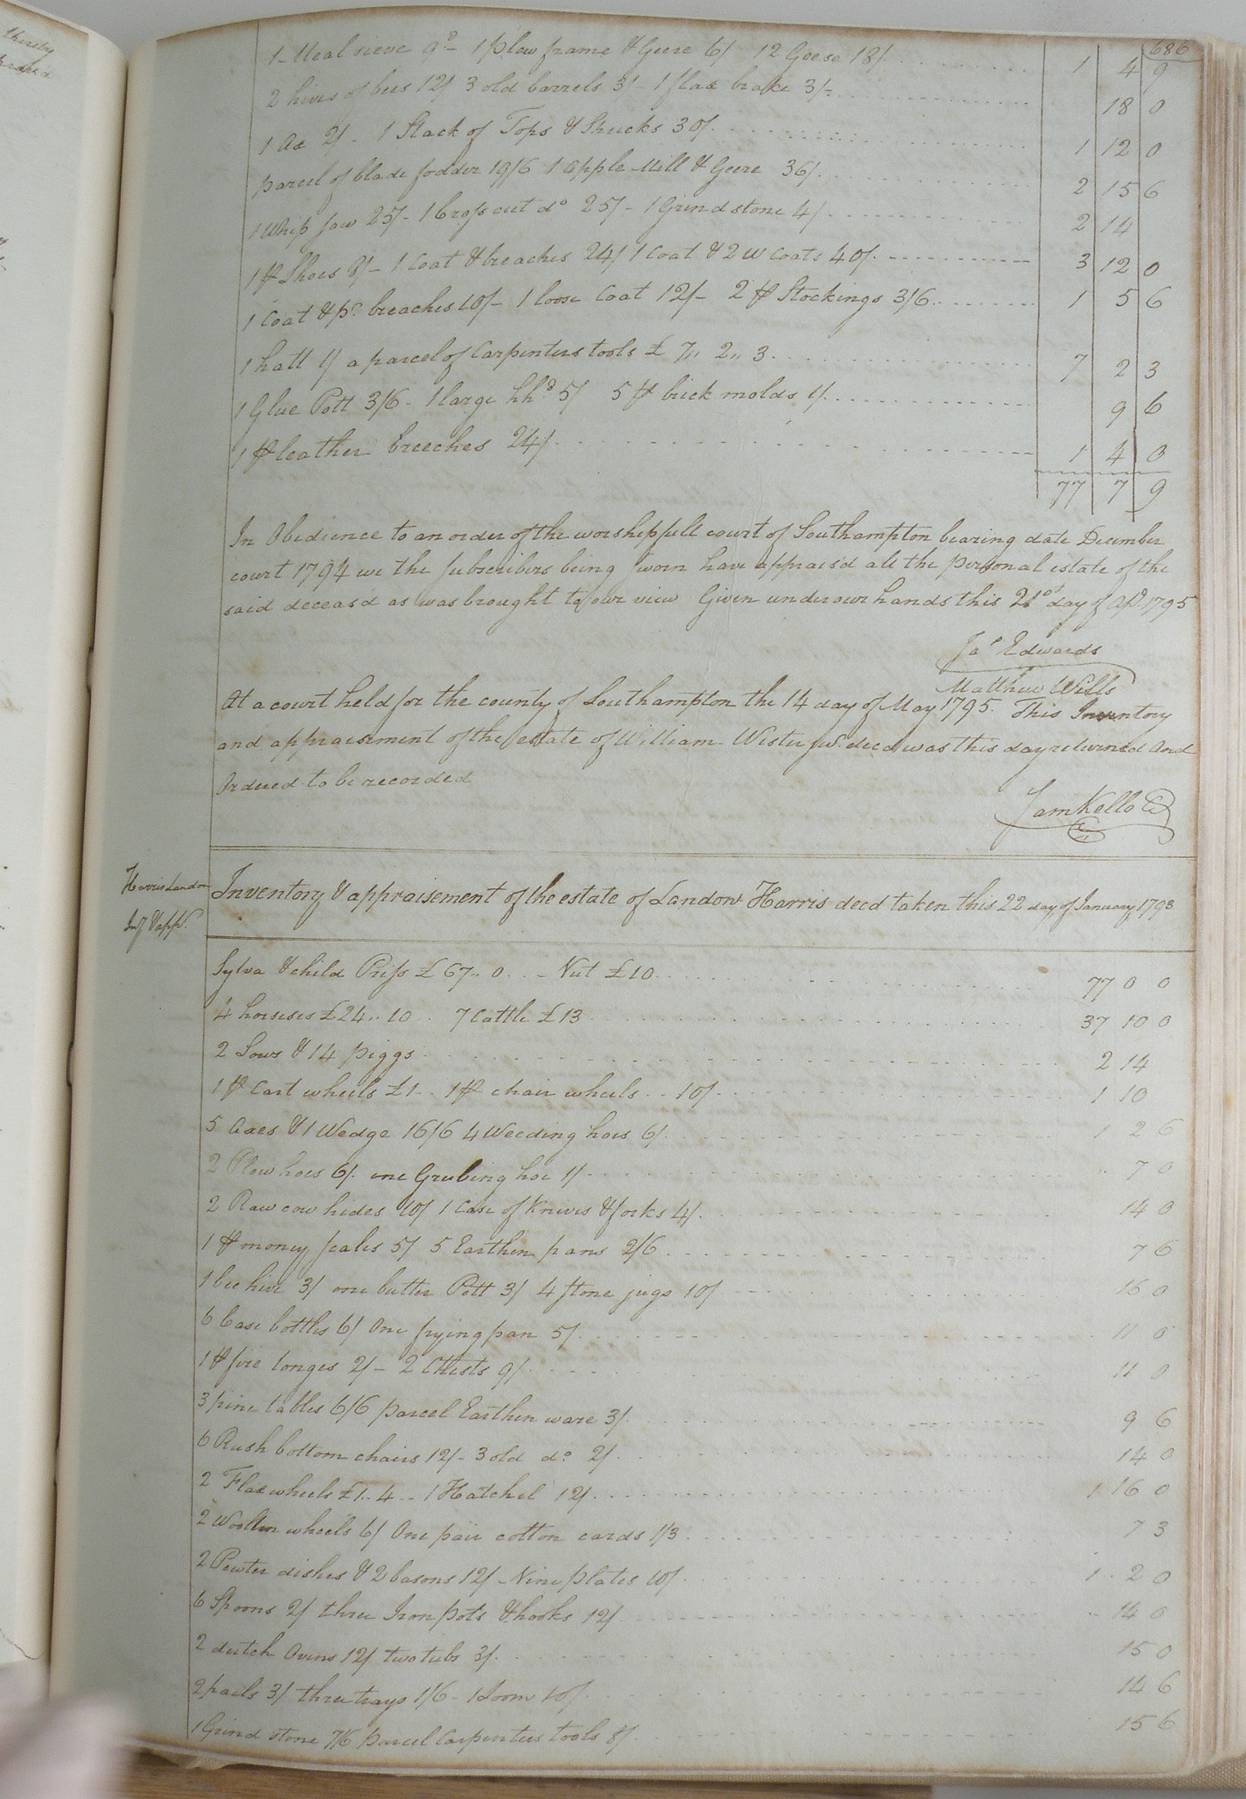 686
1 Meal sieve 9d - 1 plow frame & Geere 6/ 12 Geese 18/ 1 4 9
2 hives of bees 12/ 3 old barrels 3/ - 1 flax brake 3/- 18 0
1 Ax 2/ - 1 Stack of Tops & Shucks 30/ 1 12 0
parcel of blade fodder 19/6 1 Apple Mill & Geere 36/ 2 15 6
1 Whip saw 25/- 1 Cross cut do 25/- 1 Grindstone 4/ 2 14
1 pr Shoes 8/- 1 Coat & breaches 24/ 1 Coat & 2 W Coats 40/ 3 12 0
1 Coat & pr breaches 10/- 1 loose Coat 12/- 2 pr Stockings 3/6 1 5 6
1 hatt 1/ a parcel of Carpenters tools £ 7,, 2,, 3 7 2 3
1 Glue Pott 3/6 - 1 large hhd 5/ 5 pr brick molds 1/ 9 6
1 pr leather breeches 24/ 1 4 0
77 7 9
In Obedience to an order of the worshippfull court of Southampton bearing date December
court 1794 we the subscribers being sworn have appraisd all the personal estate of the
said deceasd as was brought to our view Given under our hands this 21st day of Apl. 1795
Jas Edwards
Matthew Wills
At a court held for the county of Southampton the 14 day of May 1795. This Inventory
and appraisement of the estate of William decd was this day returned and
Ordered to be recorded
Sam Kello
Harris Landon
Inventory & appraisement of the estate of Landon Harris decd taken this 22 day of January 1793
Sylva & child Priss £ 67.. 0 .. - Nut £10 77 0 0
4 horseses £24.. 10 .. 7 Cattle £13 37 10 0
2 Sows & 14 piggs 2 14
1 pr Cart wheels £1.. 1 pr chair wheels .. 10/ 1 10
5 Axes & 1 Wedge 16/6 4 Weeding hoes 6/ 1 2 6
2 Plow hoes 6/. one Grubing hoe 1/ 7 0
2 Raw cow hides 10/ 1 Case of Knives & forks 4/. 14 0
1 pr money scales 5/ 5 Earthen pans 2/6 7 6
1 bee hive 3/ one butter Pott 3/ 4 stone jugs 10/ 16 0
6 Case bottles 6/ One frying pan 5/. 11 0
1 pr fire tonges 2/- 2 Chests 9/ 11 0
3 pine tables 6/6 parcel Earthen ware 3/. 9 6
6 Rush bottom chairs 12/- 3 old do 2/. 14 0
2 Flax wheels £1.. 4 .. 1 Hatchel 12/. 1 16 0
2 Woollin wheels 6/ One pair cotton cards 1/3 7 3
2 Pewter dishes & 2 basons 12/ - Nine plates 10/. 1 2 0
6 Spoons 2/ three Iron pots & hooks 12/ 14 0
2 dutch Ovins 12/ two tubs 3/. 15 0
2 pails 3/ three trays 1/6 - 1 Loom 10/ 14 6
1 Grind stone 7/6 parcel Carpenters tools 8/. 15 6